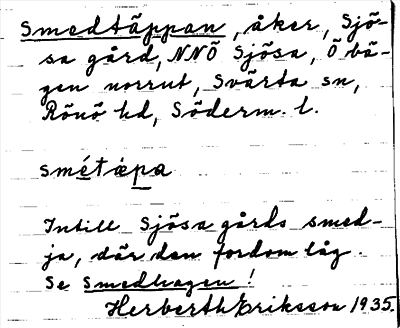 Smedtäppan, åker, Sjö-
sa gård, NNÖ Sjösa, Ö bä-
gen norrut, Svärta sn,
Rönö hd, Söderm. l.
smétæpa
Intill Sjösa gårds smed-
ja, där den fordom låg.
Se Smedhagen!
Herberth Eriksson 1935.